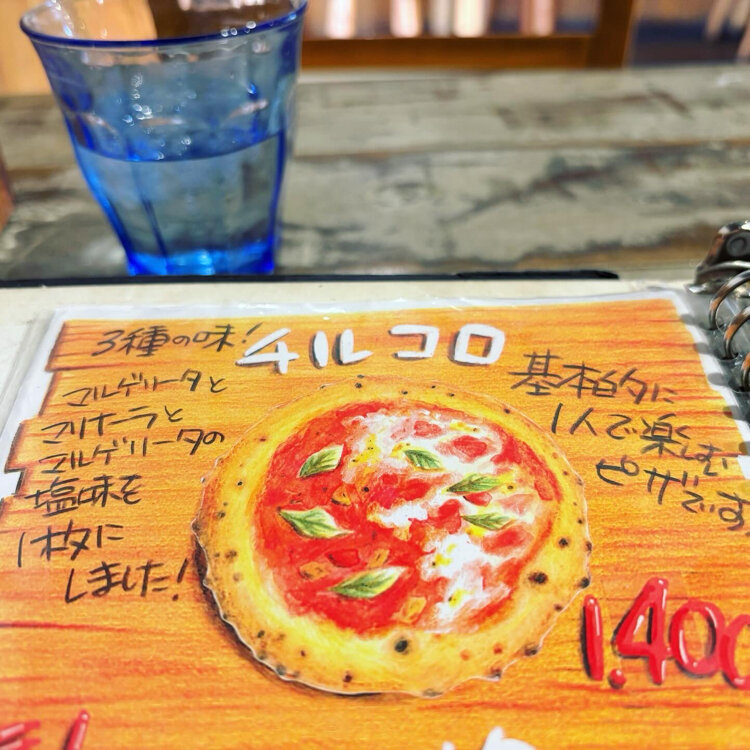 チルコロ
3種の味!
マルゲリータと
マリナーラと
マルゲリータの
塩味を
1枚に
しました!
基本的に
1人で楽しむ
ピザです
1.400